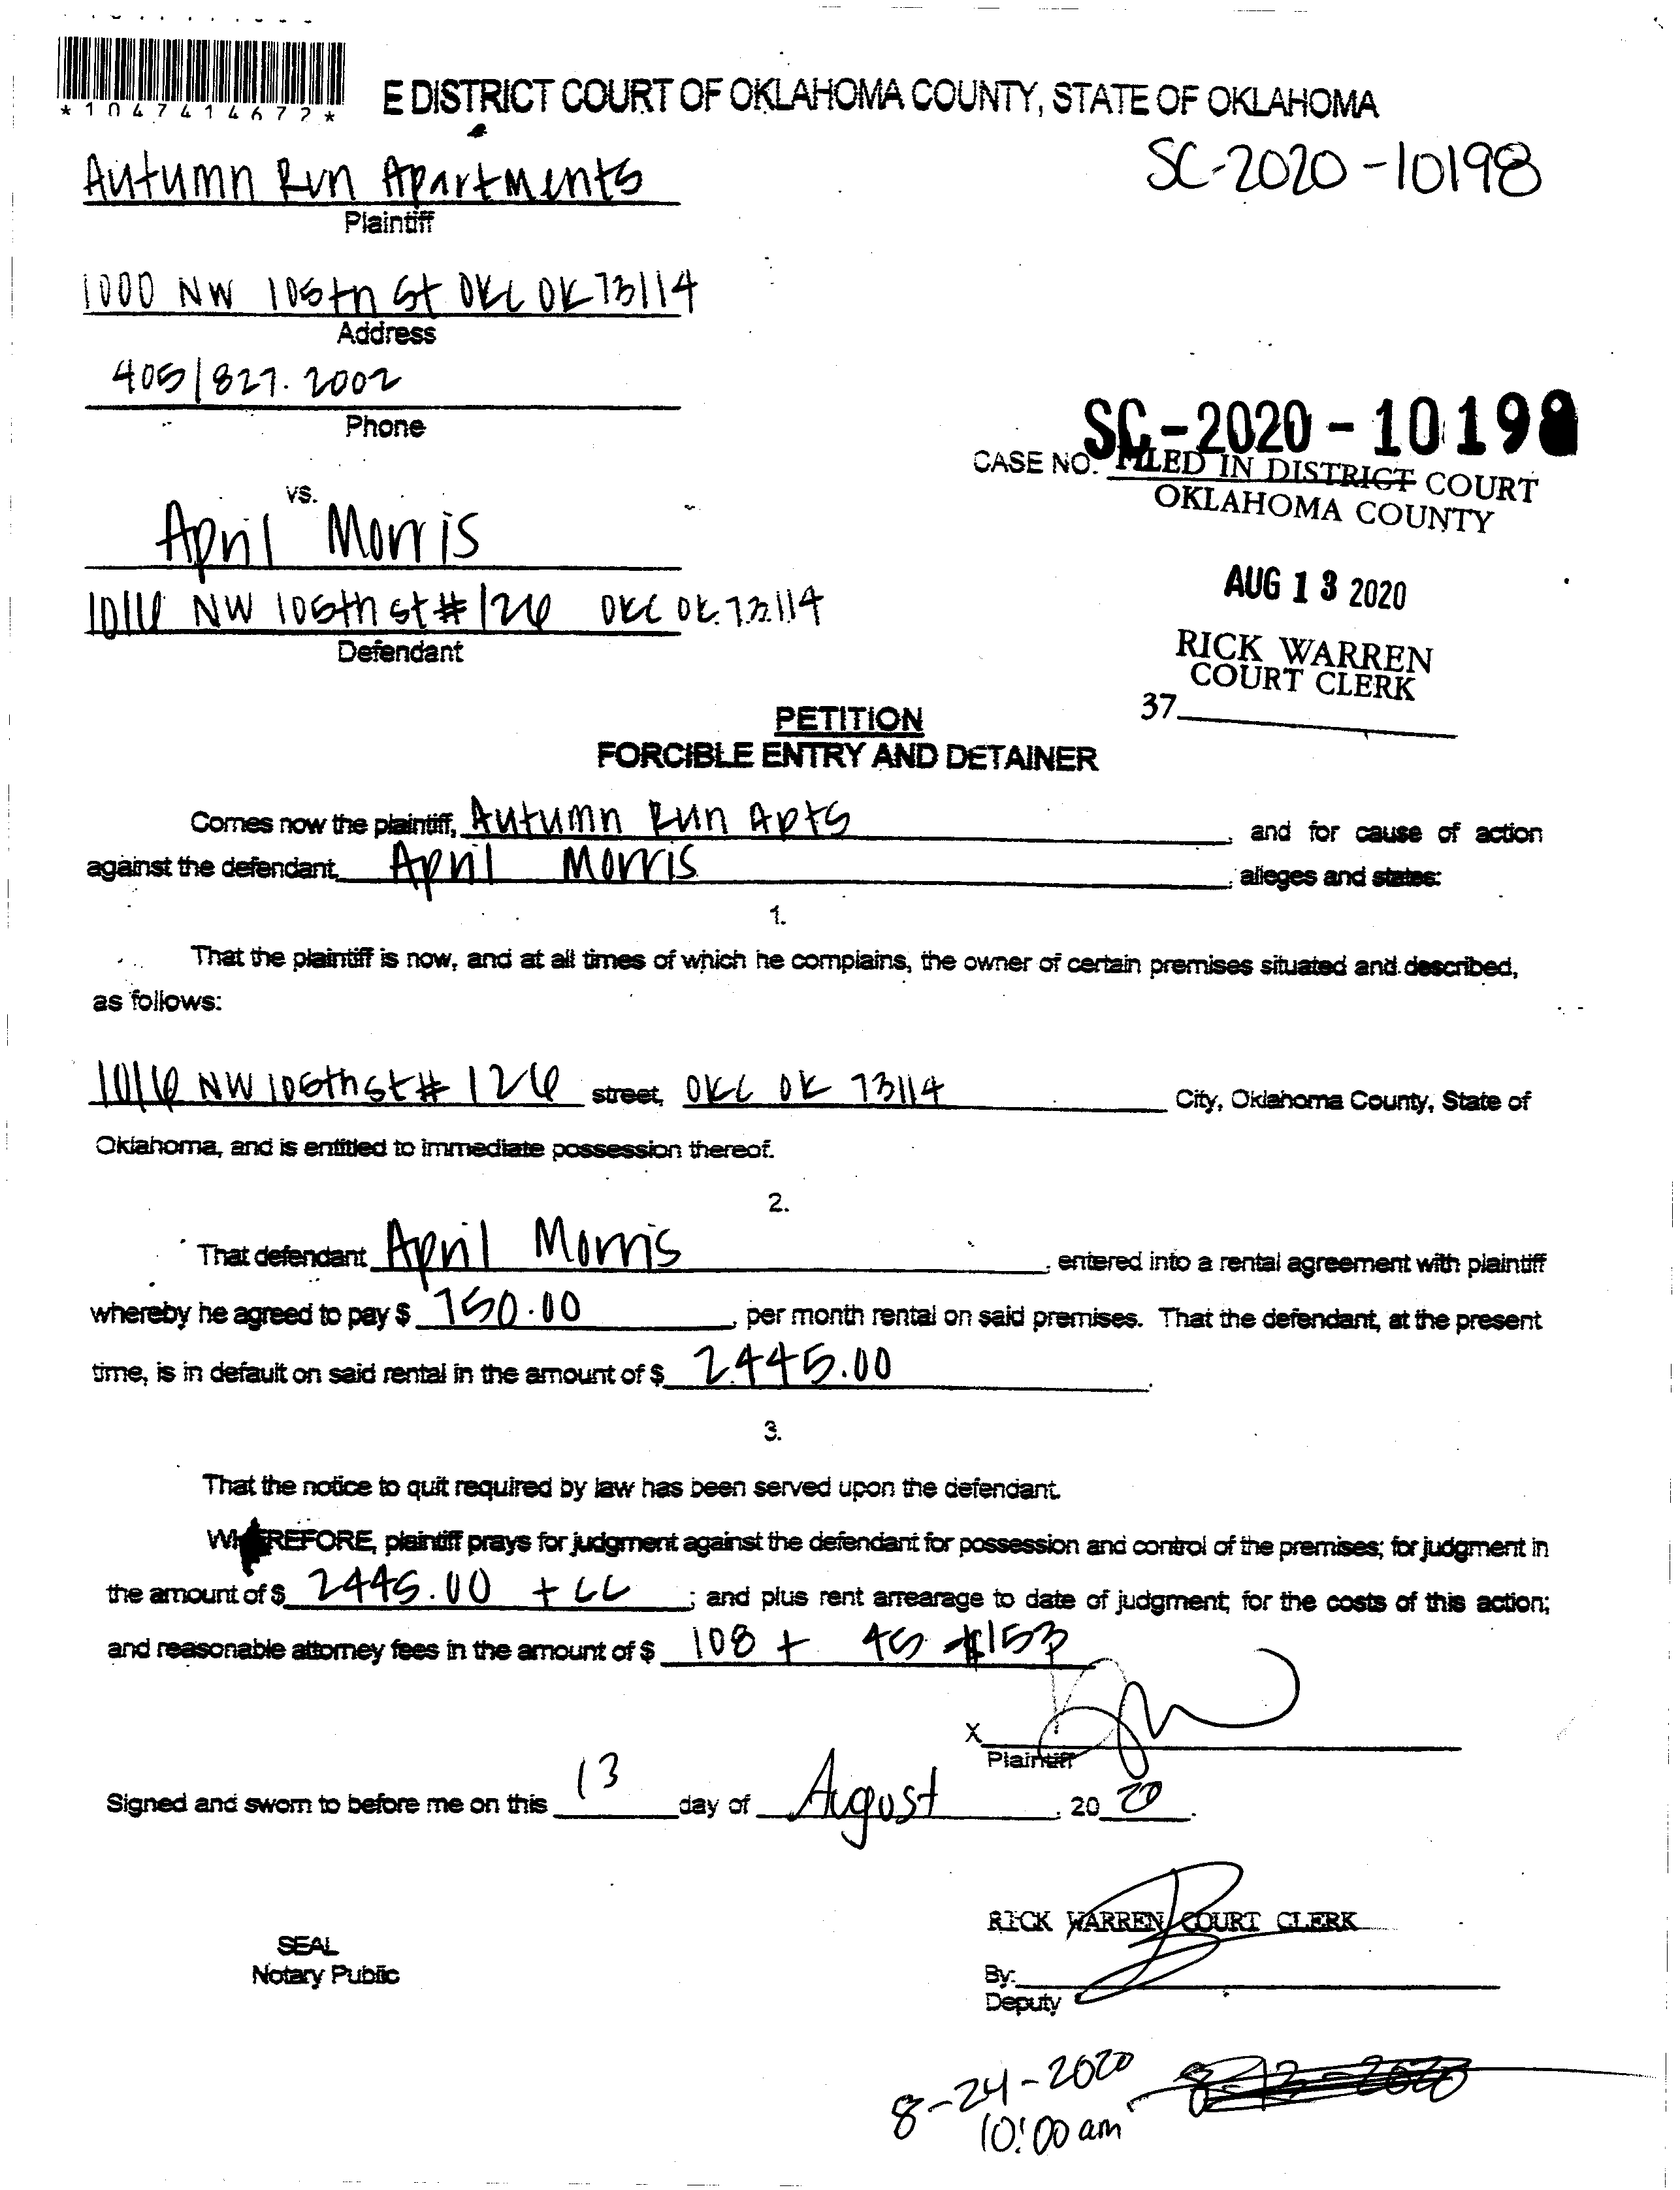 *1047414672*
E DISTRICT COURT OF OKLAHOMA COUNTY, STATE OF OKLAHOMA
SC-2020-10198
Autumn Run Apartments
Plaintiff
1000 NW 105th St OKC OK 73114
Address
405/827.2002
Phone
SC-2020-10198
CASE NO.
FILED IN DISTRICT COURT
OKLAHOMA COUNTY
vs.
April Morris
AUG 13 2020
1016 NW 106th st #126 OKC OK 73114
Defendant
RICK WARREN
COURT CLERK
37
PETITION
FORCIBLE ENTRY AND DETAINER
Comes now the plaintiff, Autumn Run Apts, and for cause of action
against the defendant, April Morris, alleges and states:
1.
That the plaintiff is now, and at all times of which he complains, the owner of certain premises situated and described,
as follows:
1016 NW 106th st # 126 street, OKC OK 73114 City, Oklahoma County, State of
Oklahoma, and is entitled to immediate possession thereof.
2.
That defendant April Morris, entered into a rental agreement with plaintiff
whereby he agreed to pay $ 750.00, per month rental on said premises. That the defendant, at the present
time, is in default on said rental in the amount of $ 2445.00.
3.
That the notice to quit required by law has been served upon the defendant.
WHEREFORE, plaintiff prays for judgment against the defendant for possession and control of the premises; for judgment in
the amount of $ 2445.00 + CC; and plus rent arrearage to date of judgment; for the costs of this action;
and reasonable attorney fees in the amount of $ 108 + 45 $153
X
Plaintiff
Signed and sworn to before me on this 13 day of August, 2020.
RICK WARREN COURT CLERK
SEAL
Notary Public
By:
Deputy
8-24-2020
10:00 am